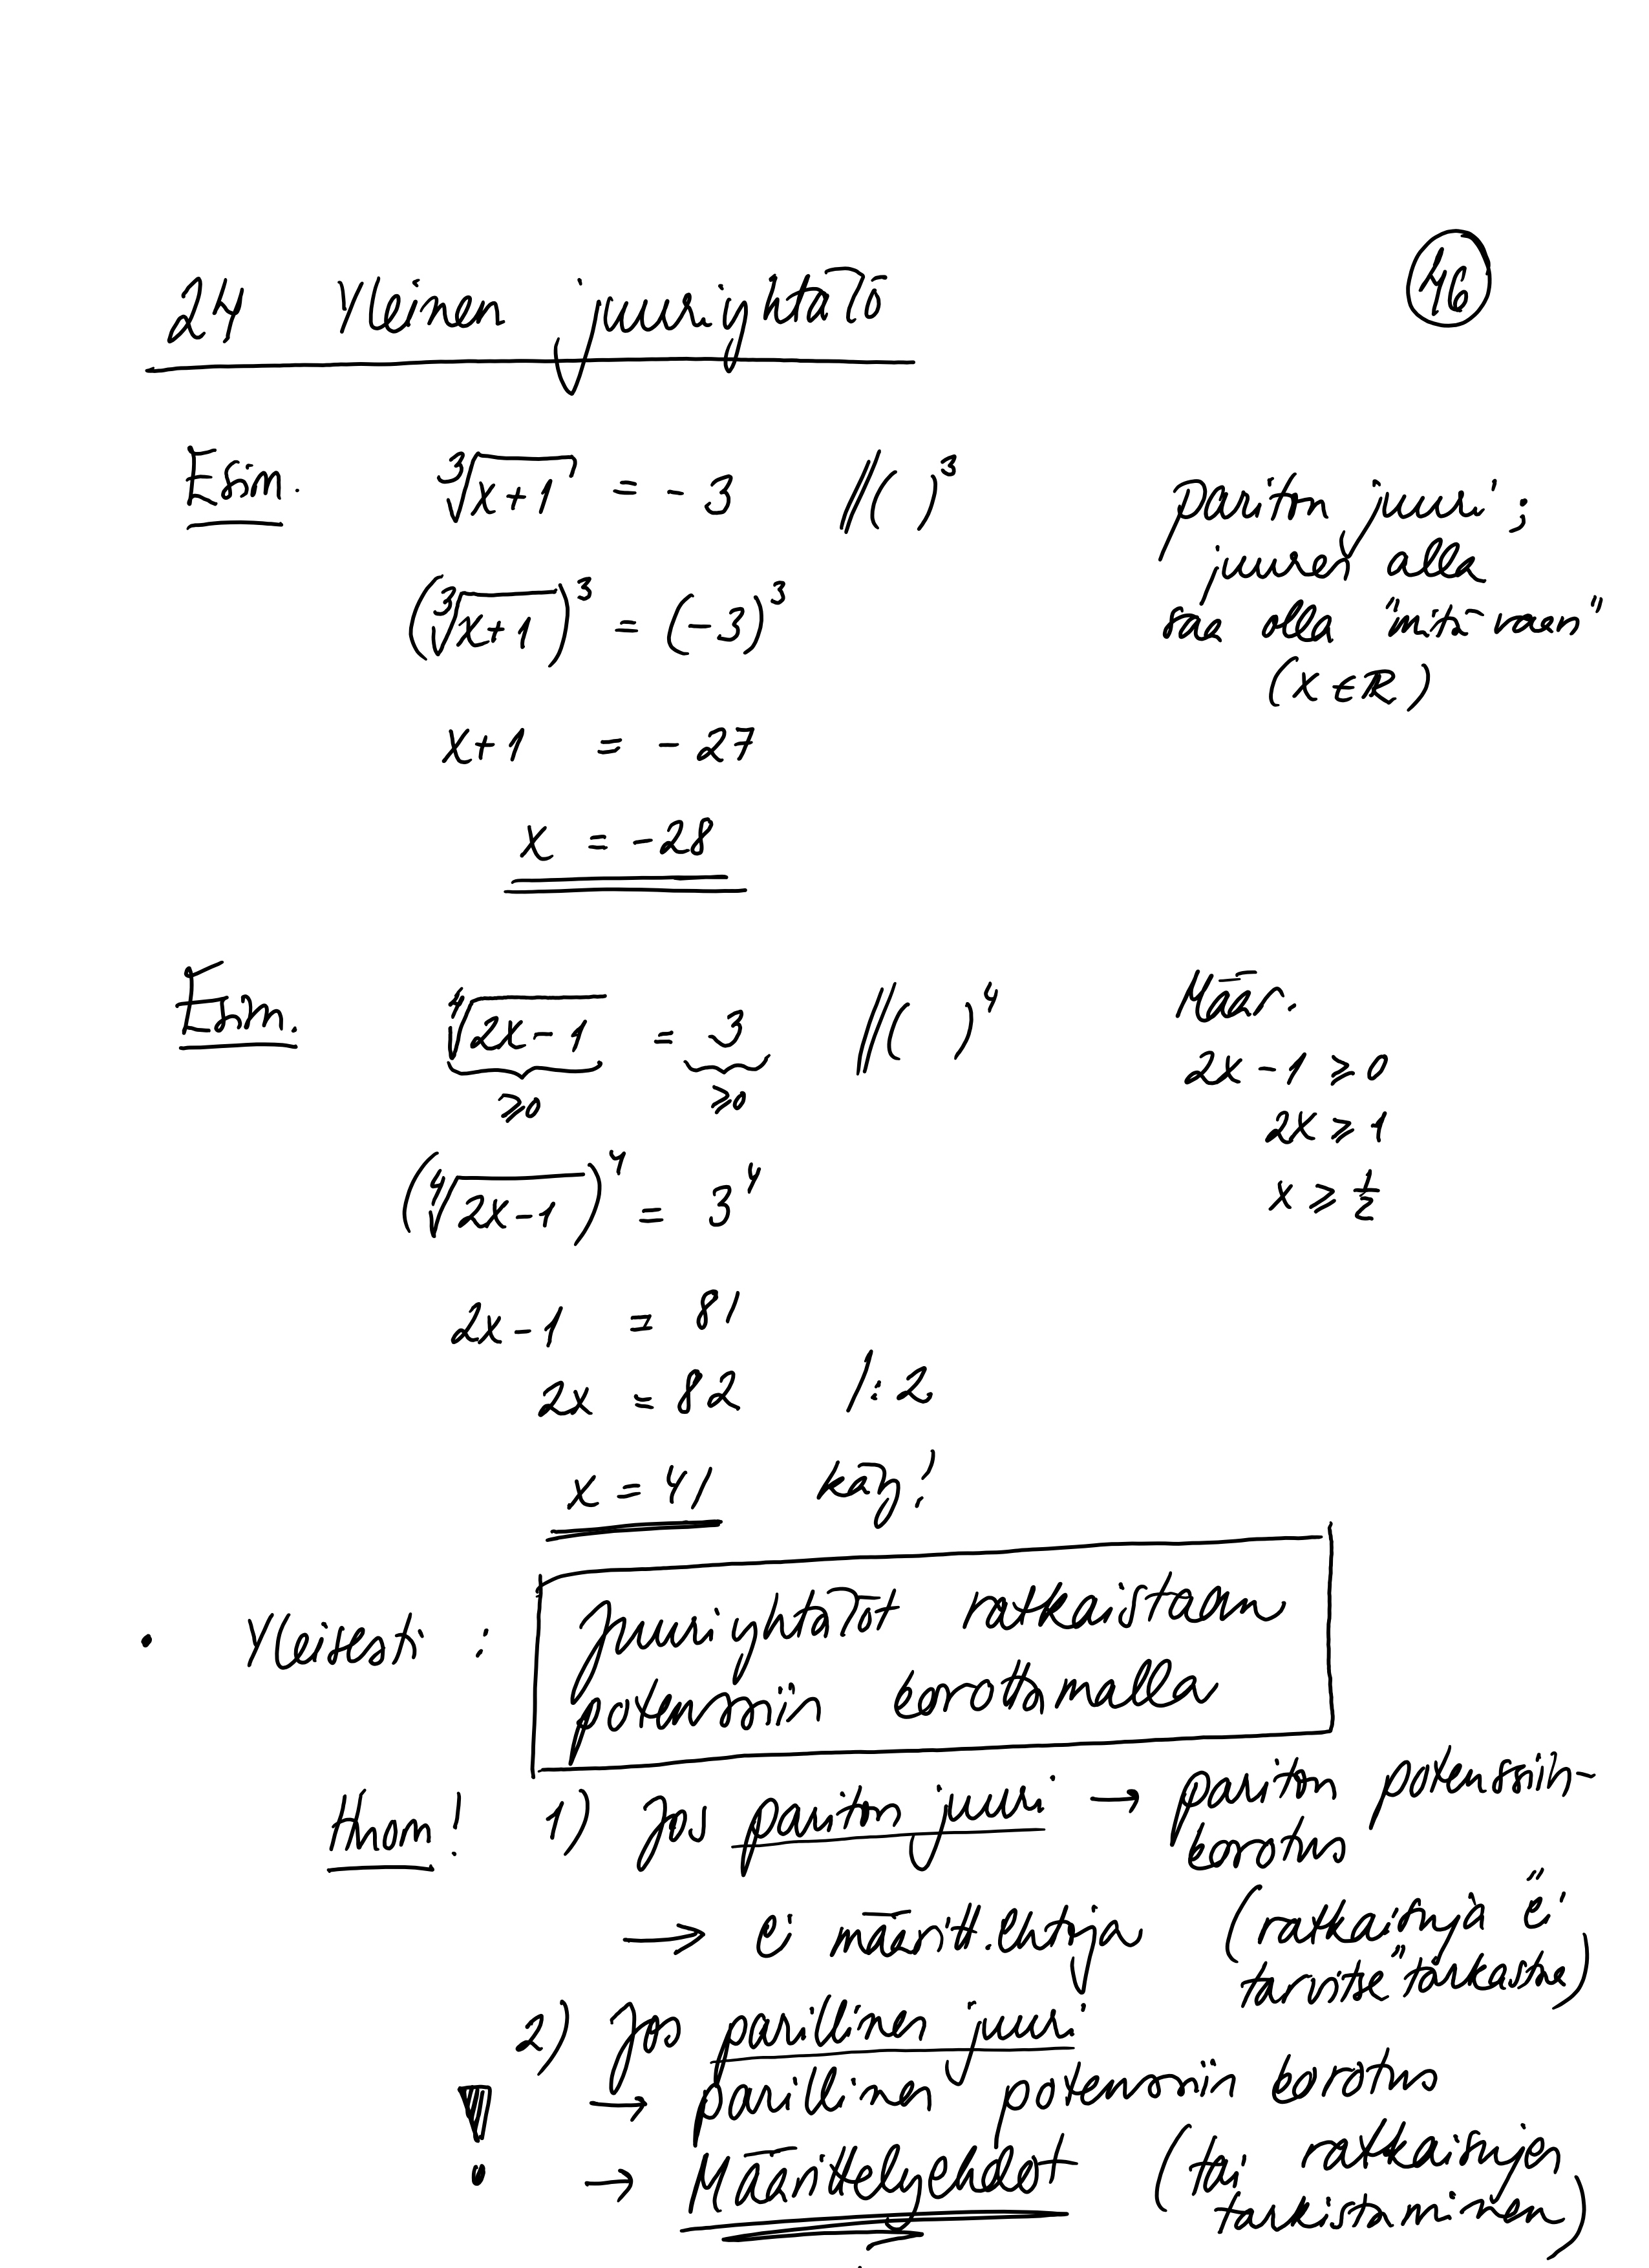 24 Yleinen juuriyhtälö
46
Esim. ∛(x+1) = -3 //( )³
pariton juuri;
juuren alla
saa olla "mitä vaan"
(x ∈ ℝ)
(∛(x+1))³ = (-3)³
x+1 = -27
x = -28
Esim. ∜(2x-1) = 3 //( )⁴
≥0 ≥0
Määr.
2x-1 ≥ 0
2x ≥ 1
x ≥ 1/2
(∜(2x-1))⁴ = 3⁴
2x-1 = 81
2x = 82 /:2
x = 41 käy!
• Yleisesti: Juuriyhtälöt ratkaistaan
potenssiin korottamalla
Huom! 1) Jos pariton juuri → pariton potenssiin-
korotus
→ ei määritt.ehtoja (ratkaisuja "ei
tarvitse" tarkastaa)
2) Jos parillinen juuri
→ parillinen potenssiin korotus
! → Määrittelyehdot (tai ratkaisujen
tarkistaminen)